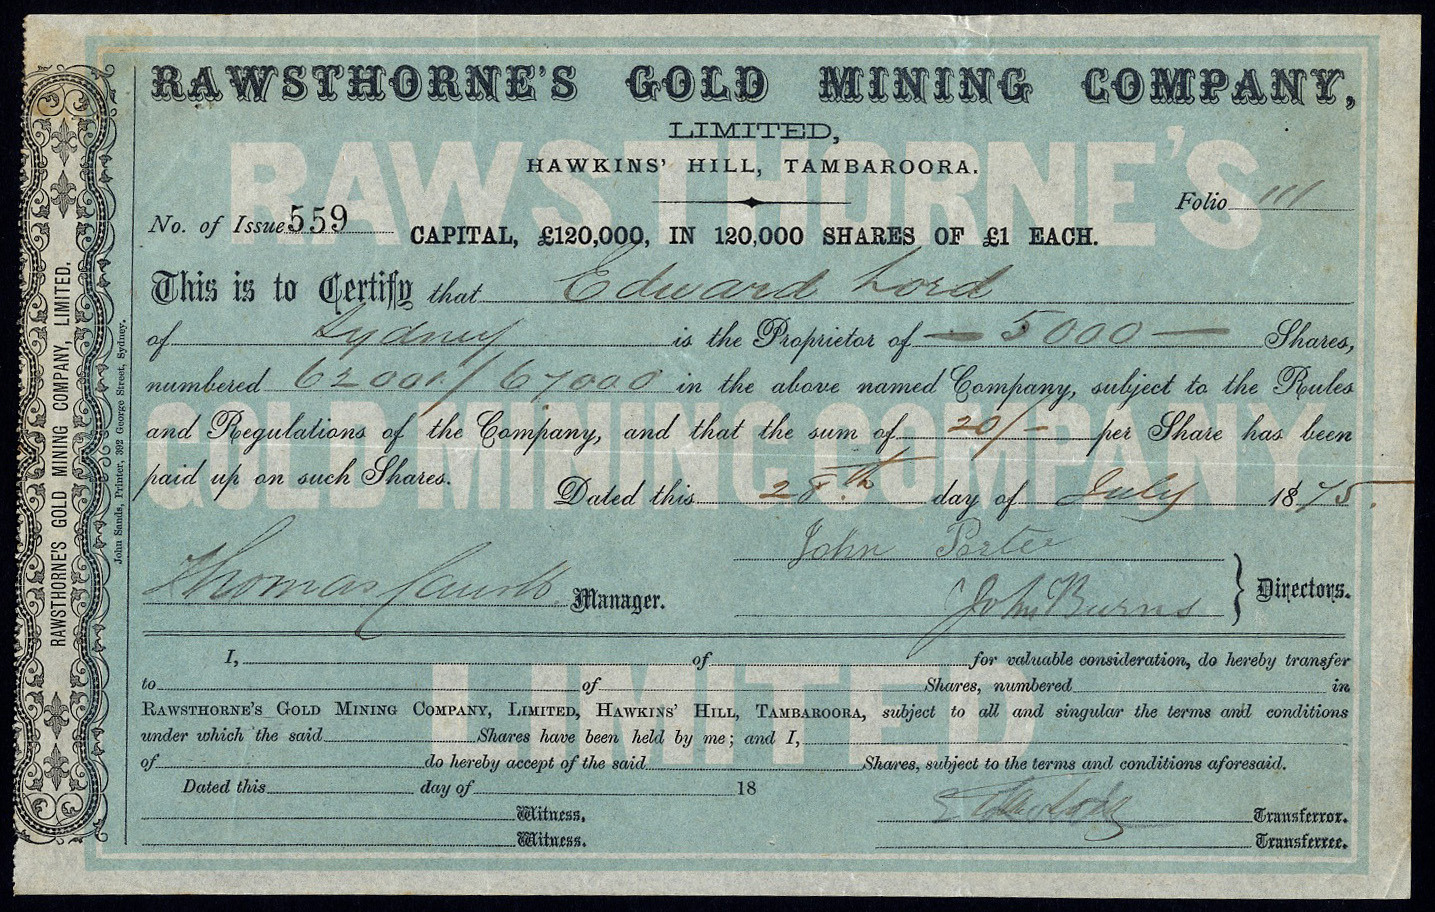 RAWSTHORNE'S GOLD MINING COMPANY,
LIMITED,
HAWKINS' HILL, TAMBAROORA.
Folio 111
No. of Issue 559
CAPITAL, £120,000, IN 120,000 SHARES OF £1 EACH.
This is to Certify that Edward Lord
of Sydney is the Proprietor of — 5000 — Shares,
numbered 62001/67000 in the above named Company, subject to the Rules
and Regulations of the Company, and that the sum of 20/- per Share has been
paid up on such Shares.
Dated this 28th day of July 1875.
Thomas Manager.
John Porter
John Burns
Directors.
I, of for valuable consideration, do hereby transfer
to of Shares, numbered in
RAWSTHORNE'S GOLD MINING COMPANY, LIMITED, HAWKINS' HILL, TAMBAROORA, subject to all and singular the terms and conditions
under which the said Shares have been held by me; and I,
of do hereby accept of the said Shares, subject to the terms and conditions aforesaid.
Dated this day of 18
Witness, Transferror.
Witness. Transferree.
RAWSTHORNE'S GOLD MINING COMPANY, LIMITED.
John Sands, Printer, 392 George Street, Sydney.
RAWSTHORNE'S
GOLD MINING COMPANY
LIMITED